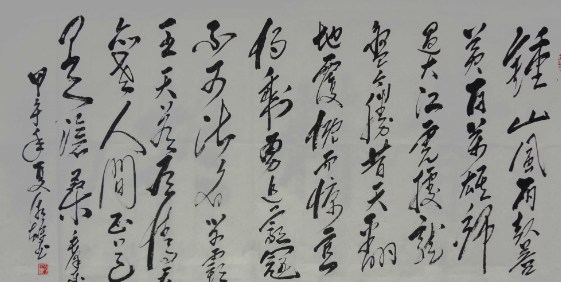 鍾山風雨起蒼
黃百萬雄師
過大江虎據龍
盤今勝昔天翻
地覆慨而慷宜
將剩勇追窮寇
不可沽名學霸
王天若有情天
亦老人間正道
是滄桑
甲午年夏